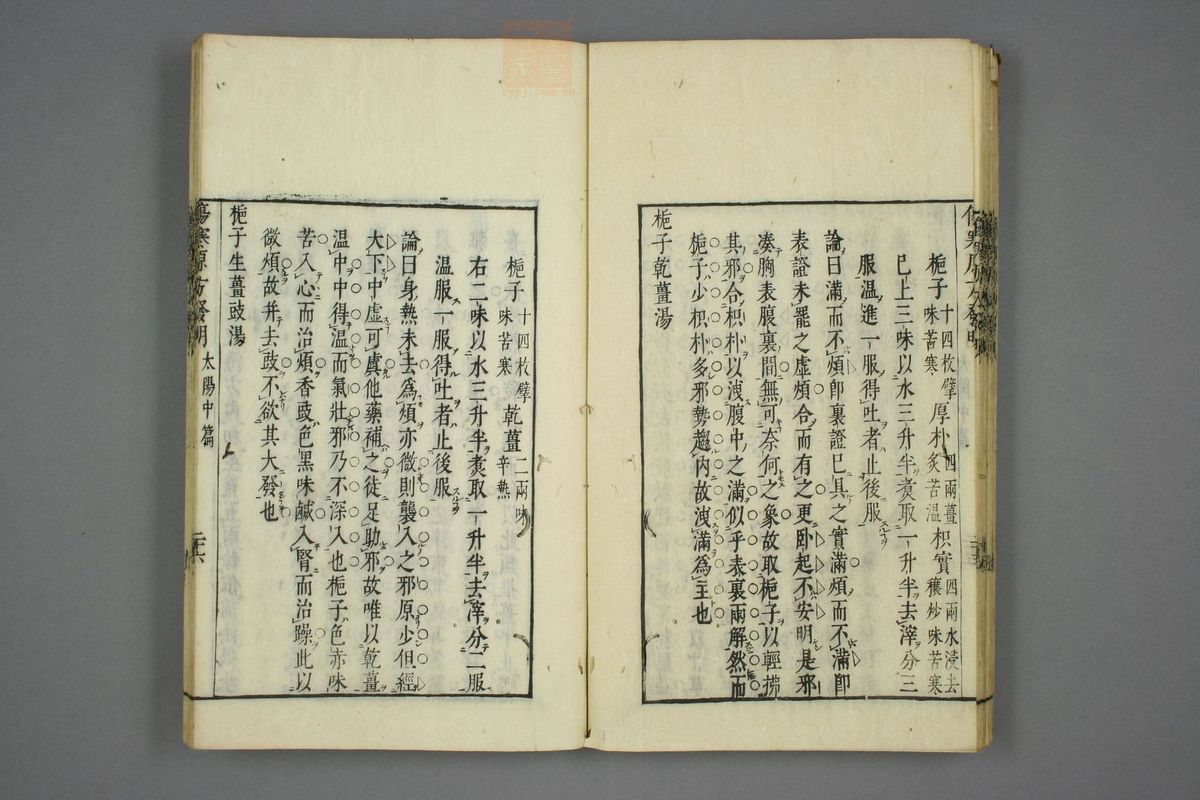 梔子 十四枚擘味苦寒 厚朴 四兩薑炙苦温 枳實 四兩水浸去穰炒味苦寒
巳上三味以水三升半煑取一升半去滓分三
服温進一服得吐者止後服
論曰滿而不煩卽裏證巳具之實滿煩而不滿卽
表證未罷之虛煩合而有之更卧起不安明是邪
凑胸表腹裏間無可奈何之象故取梔子以輕拂
其邪合枳朴以洩腹中之滿似乎表裏兩解然而
梔子少枳朴多邪勢趨內故洩滿爲主也
梔子乾薑湯
梔子 十四枚擘味苦寒 乾薑 二兩味辛熱
右二味以水三升半煑取一升半去滓分二服
温服一服得吐者止後服
論曰身熱未去爲煩亦微則襲入之邪原少但經
大下中虛可虞他藥補之徒足助邪故唯以乾薑
温中中得温而氣壯邪乃不深入也梔子色赤味
苦入心而治煩香豉色黑味鹹入腎而治躁此以
微煩故并去豉不欲其大發也
梔子生薑豉湯
傷寒原方發明 太陽中篇 二六
zysj.com.cn